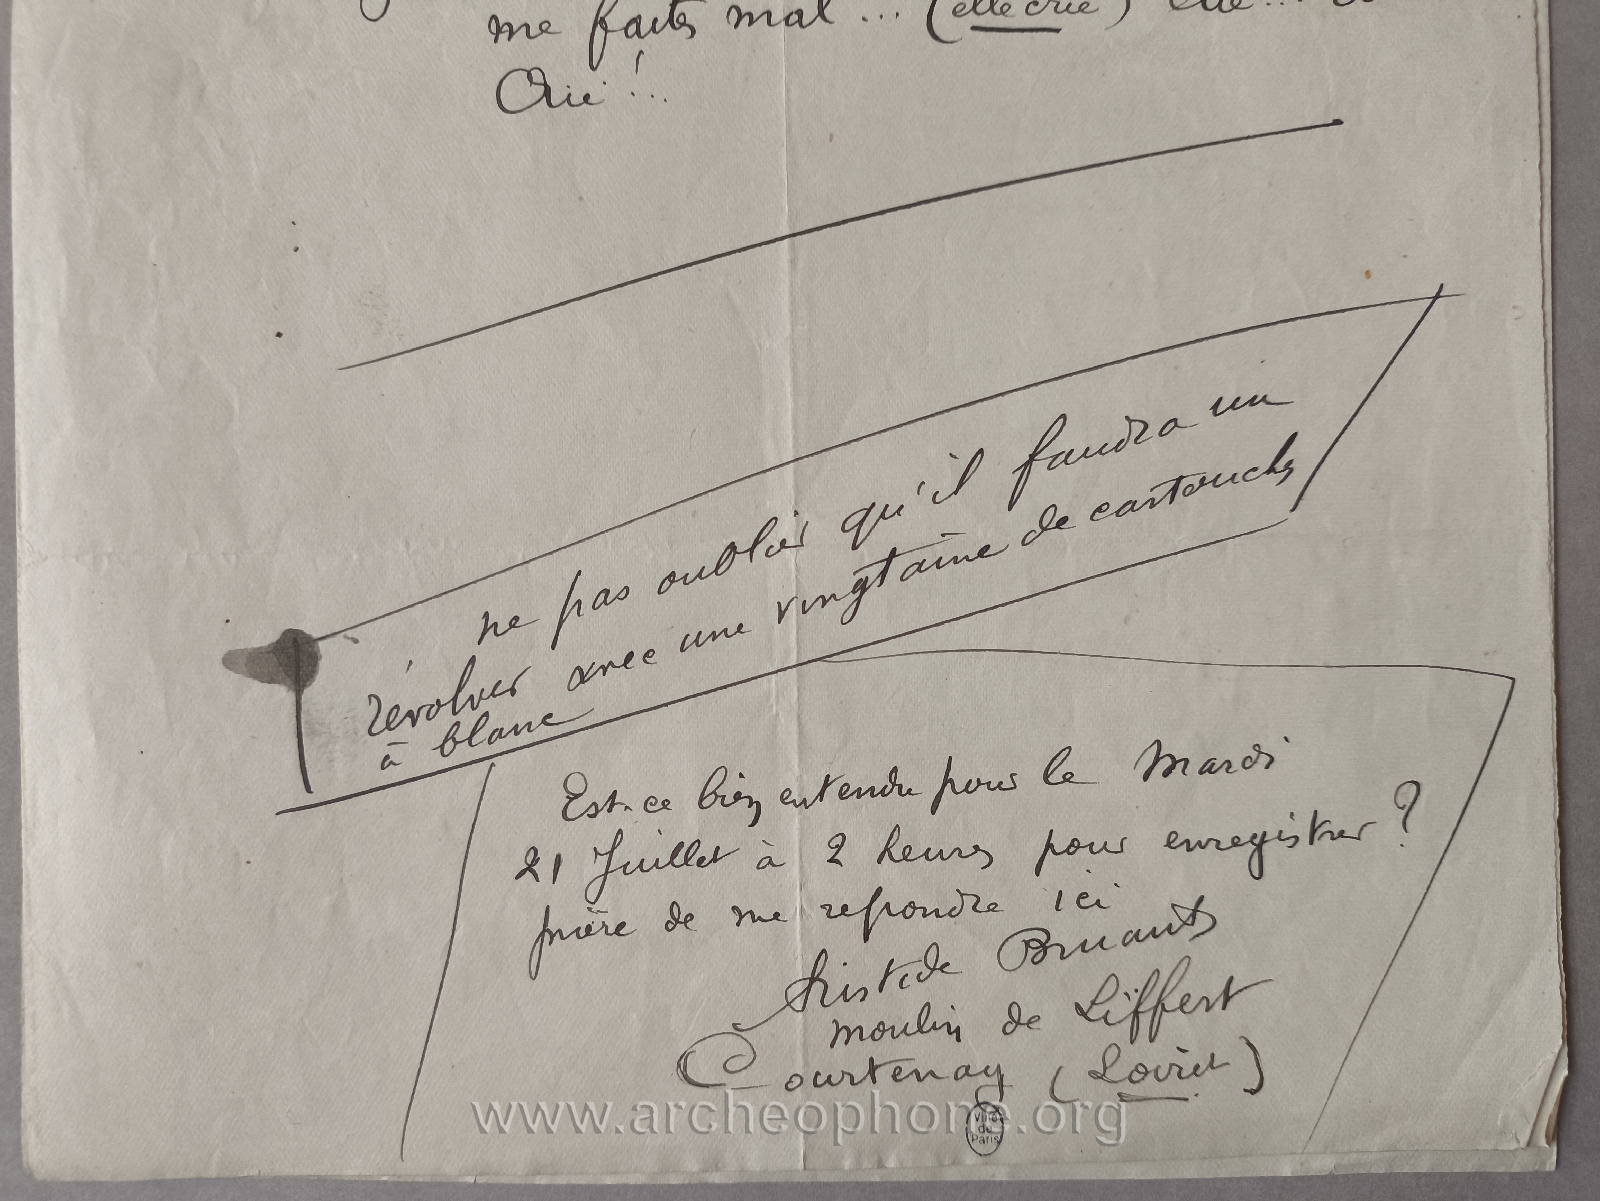 me faites mal... (elle crie)
Aïe!..
ne pas oublier qu'il faudra un
révolver avec une vingtaine de cartouches
à blanc
Est-ce bien entendu pour le Mardi
21 Juillet à 2 heures pour enregistrer?
prière de me repondre ici
Aristide Bruant
moulin de Liffert
Courtenay (Loiret)
www.archeophone.org
Ville
de
Paris